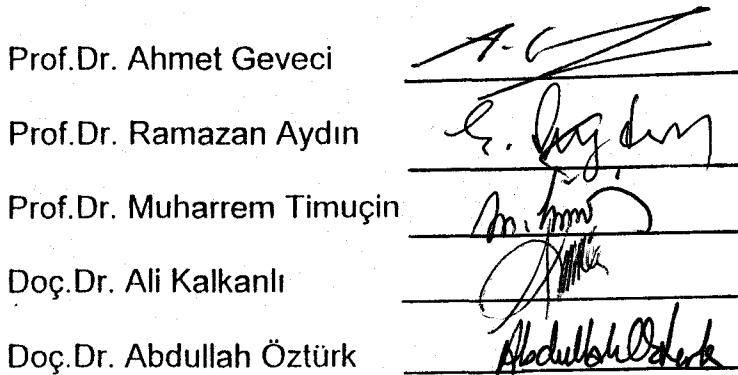 Prof.Dr. Ahmet Geveci
Prof.Dr. Ramazan Aydın
Prof.Dr. Muharrem Timuçin
Doç.Dr. Ali Kalkanlı
Doç.Dr. Abdullah Öztürk Abdullah Öztürk